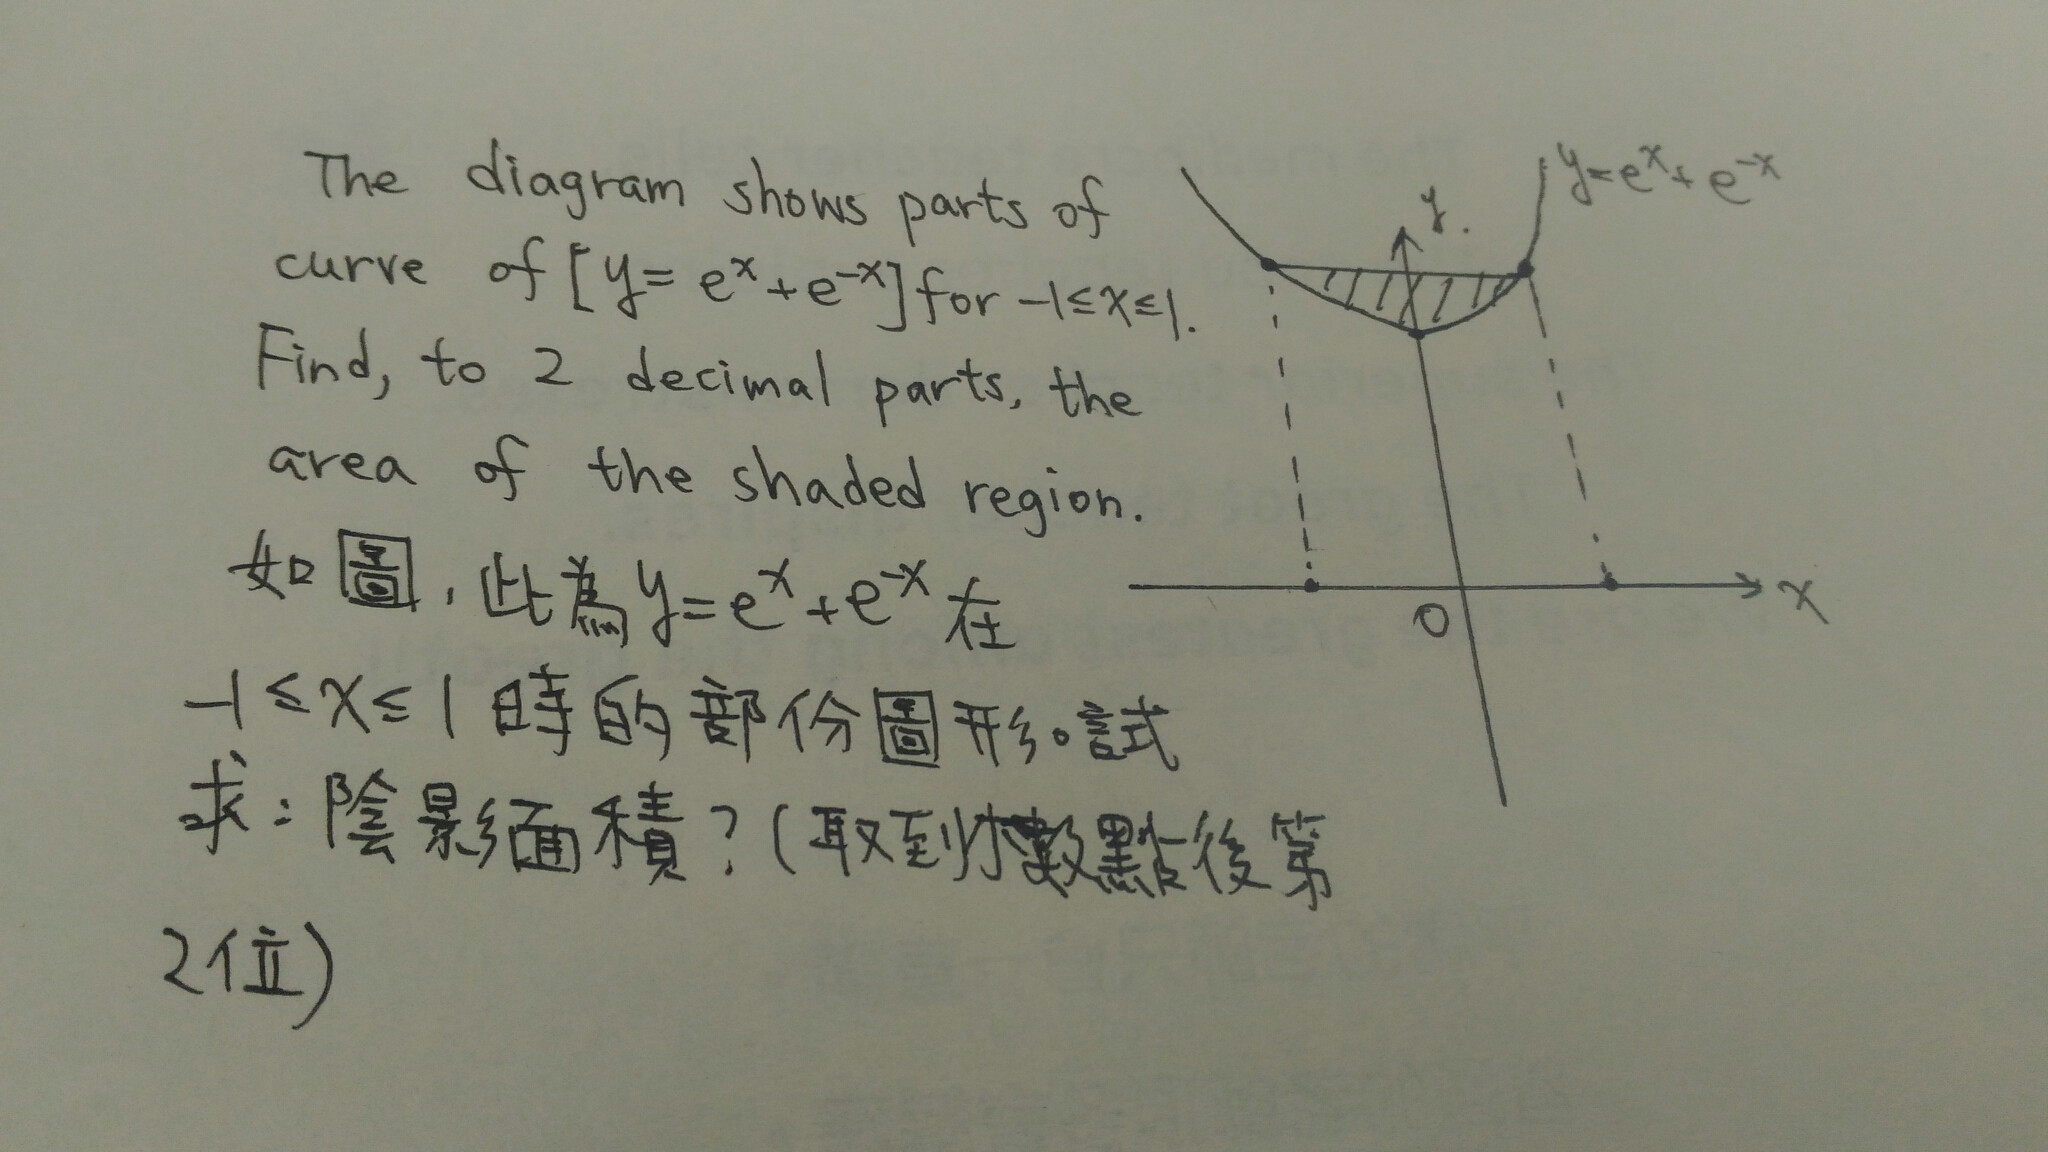 The diagram shows parts of
curve of [y= eˣ+e⁻ˣ] for -1≤x≤1.
Find, to 2 decimal parts, the
area of the shaded region.
如圖,此為y=eˣ+e⁻ˣ在
-1≤x≤1時的部份圖形。試
求:陰影面積?(取到小數點後第
2位)
y=eˣ+e⁻ˣ
y.
x
O